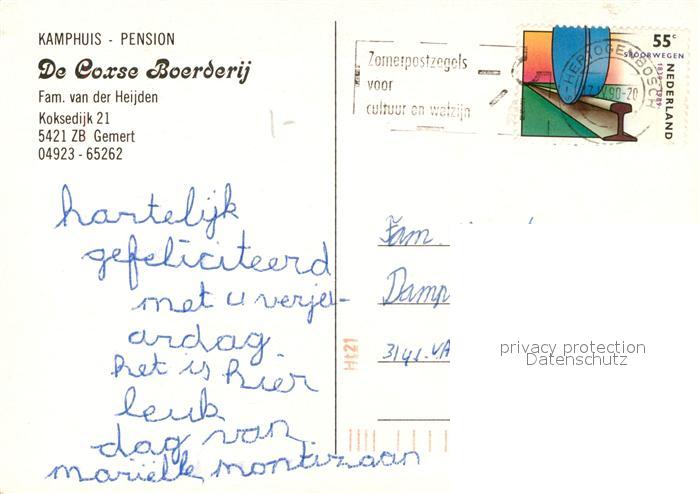 KAMPHUIS - PENSION
De Coxse Boerderij
Fam. van der Heijden
Koksedijk 21
5421 ZB Gemert
04923 - 65262
Zomerpostzegels
voor
cultuur en welzijn
'S-HERTOGENBOSCH
90-20
55c
SPOORWEGEN
1839-1989
NEDERLAND
hartelijk
gefeliciteerd
met u verja-
ardag
het is hier
leuk
dag van
mariëlle montizaan
Fam.
Damp
3141 VA
Ht21
privacy protection
Datenschutz